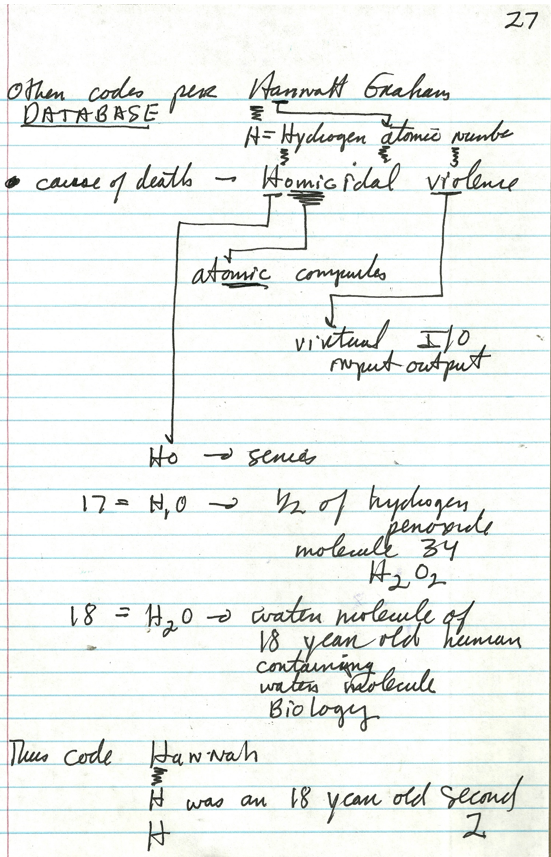 27
Other codes per Hannah Graham
DATABASE
H = Hydrogen atomic number
• cause of death → Homicidal violence
atomic computes
virtual I/O
input output
HO → series
17 = H,O → 1/2 of hydrogen
peroxide
molecule 34
H2O2
18 = H2O → water molecule of
18 year old human
containing
water molecule
Biology
Thus code Hannah
H was an 18 year old second
H 2